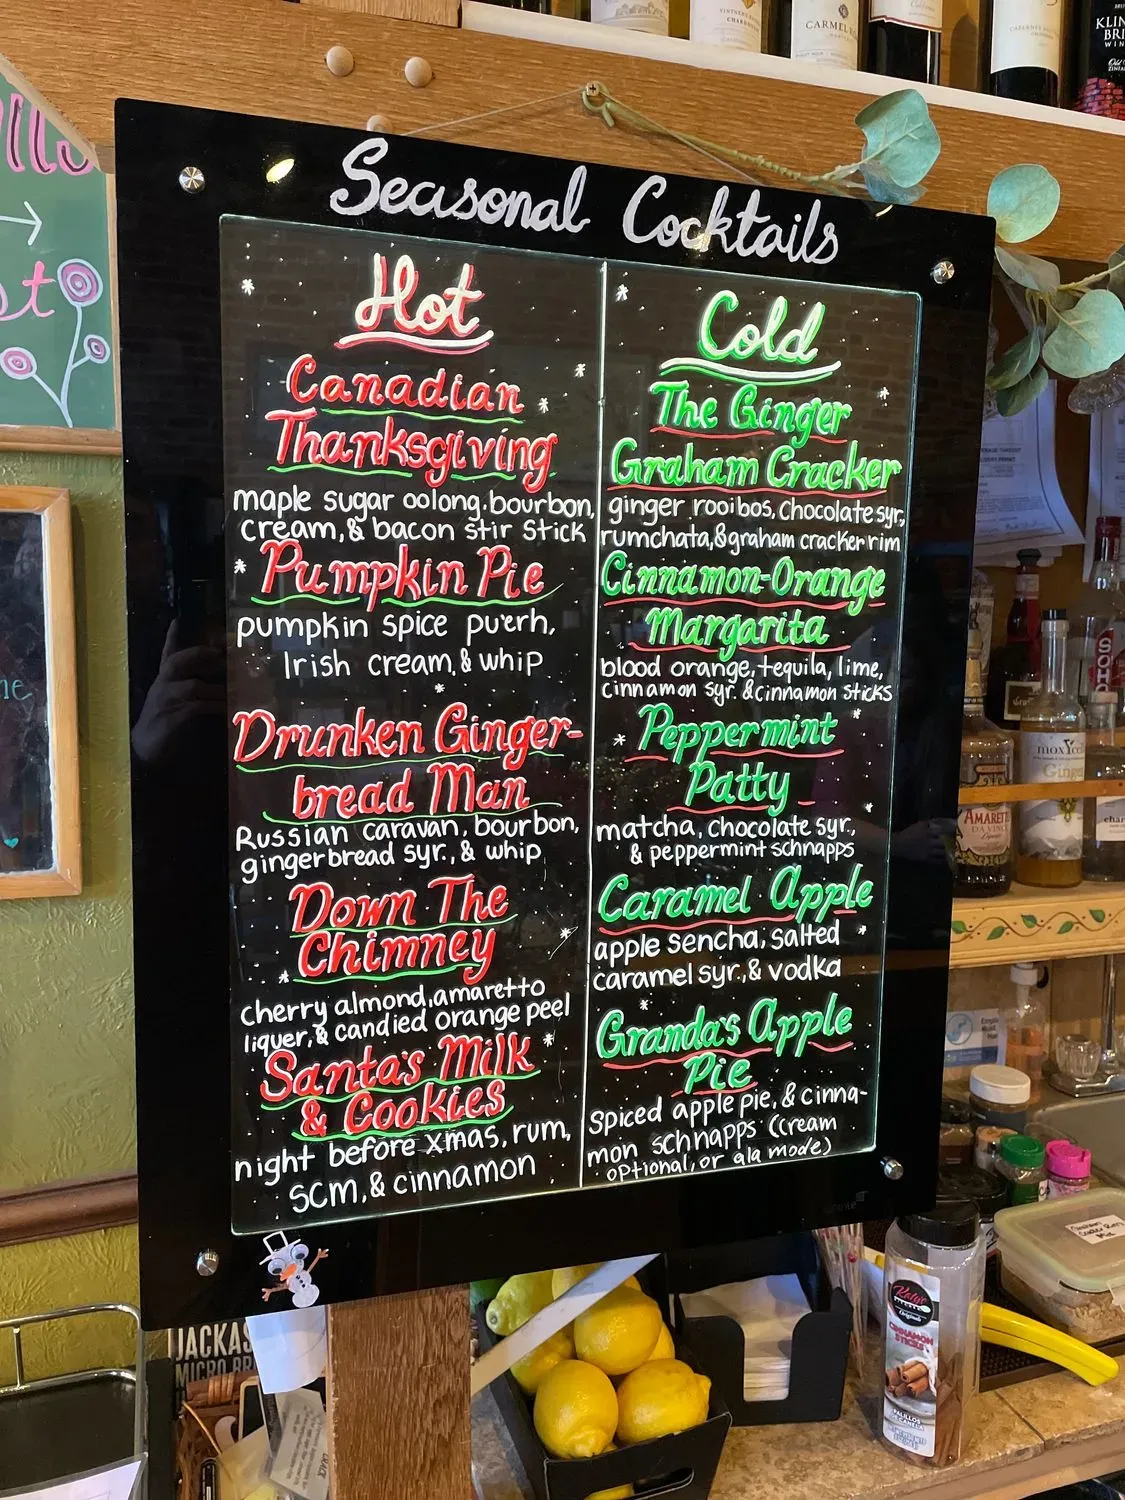 Seasonal Cocktails
Hot
Canadian
Thanksgiving
maple sugar oolong, bourbon,
cream, & bacon stir stick
Pumpkin Pie
pumpkin spice pu'erh,
Irish cream, & whip
Drunken Ginger-
bread Man
Russian caravan, bourbon,
gingerbread syr., & whip
Down The
Chimney
cherry almond, amaretto
liquer, & candied orange peel
Santa's Milk
& Cookies
night before xmas, rum,
SCM, & cinnamon
Cold
The Ginger
Graham Cracker
ginger rooibos, chocolate syr,
rumchata, & graham cracker rim
Cinnamon-Orange
Margarita
blood orange, tequila, lime,
cinnamon syr. & cinnamon sticks
Peppermint
Patty
matcha, chocolate syr.,
& peppermint schnapps
Caramel Apple
apple sencha, salted
caramel syr., & vodka
Granda's Apple
Pie
Spiced apple pie, & cinna-
mon schnapps (cream
optional, or ala mode)
CARMEL
AMARETTO
DA VINCI
JACKAS
MICRO BR
CINNAMON
STICKS